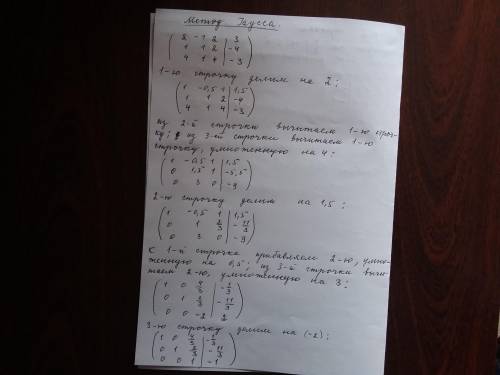 Метод Гаусса.
2 -1 2 | 3
1 1 2 | -4
4 1 4 | -3
1-ю строчку делим на 2;
1 -0,5 1 | 1,5
1 1 2 | -4
4 1 4 | -3
из 2-й строчки вычитаем 1-ю строч-
ку; из 3-ей строчки вычитаем 1-ю
строчку, умноженную на 4:
1 -0,5 1 | 1,5
0 1,5 1 | -5,5
0 3 0 | -9
2-ю строчку делим на 1,5;
1 -0,5 1 | 1,5
0 1 2/3 | -11/3
0 3 0 | -9
к 1-й строчке прибавляем 2-ю, умно-
женную на 0,5; из 3-ей строчки вычи-
таем 2-ю, умноженную на 3:
1 0 4/3 | -1/3
0 1 2/3 | -11/3
0 0 -2 | 2
3-ю строчку делим на (-2);
1 0 4/3 | -1/3
0 1 2/3 | -11/3
0 0 1 | -1